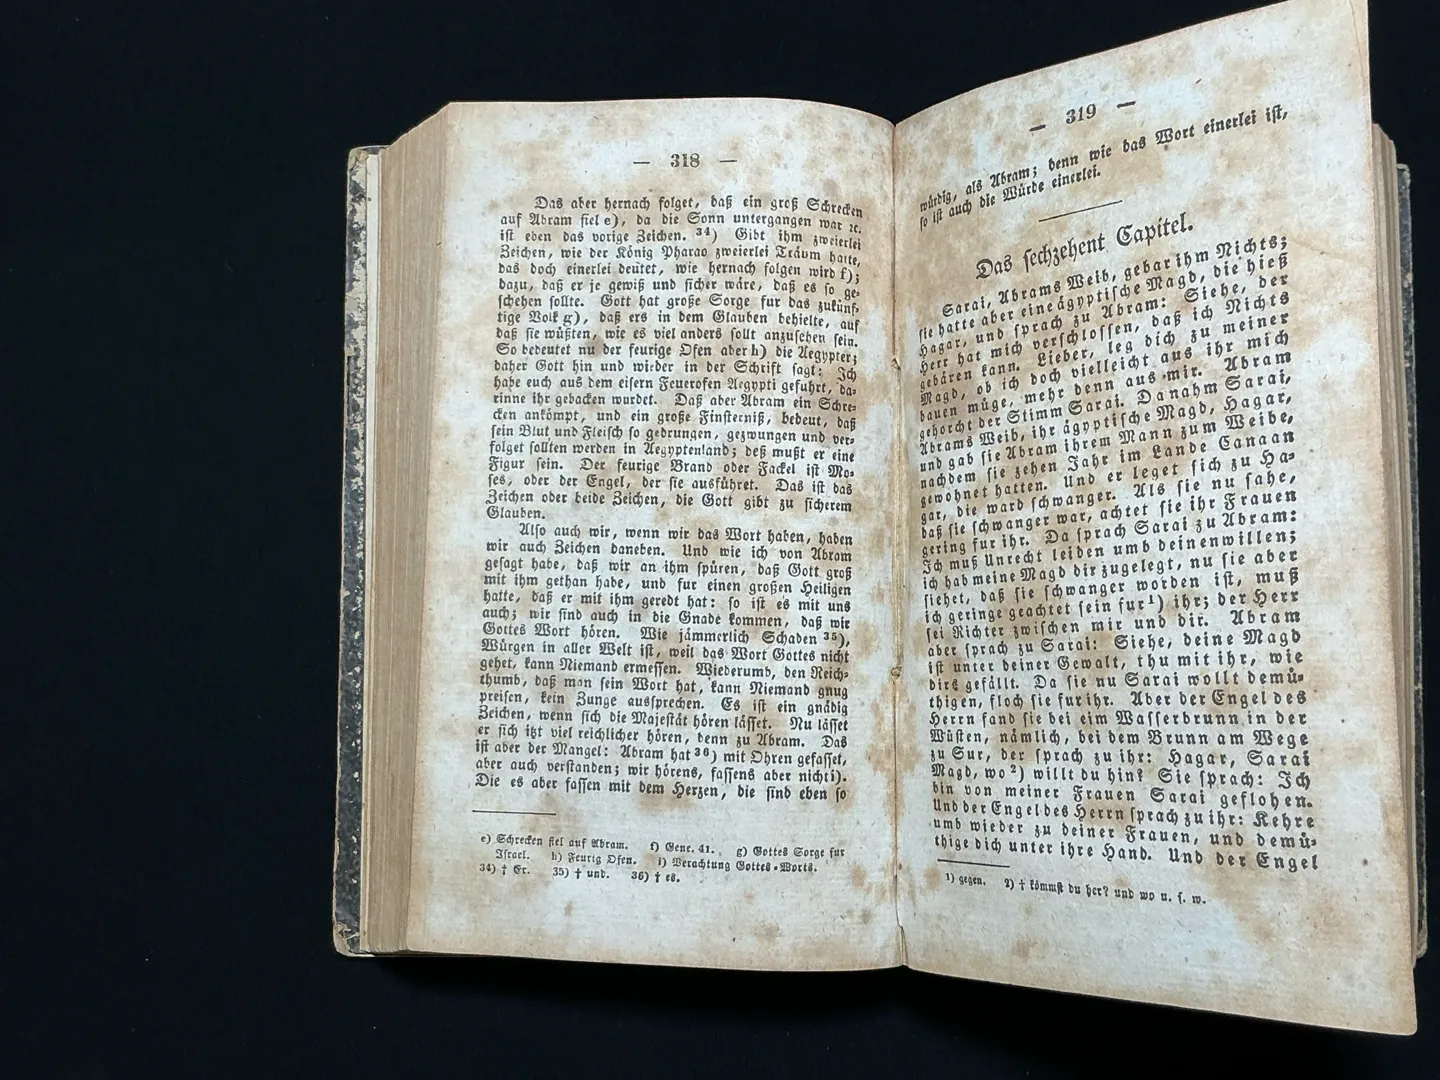 — 318 —
Das aber hernach folget, daß ein groß Schrecken
auf Abram fiel e), da die Sonn untergangen war ꝛc.
ist eben das vorige Zeichen. 34) Gibt ihm zweierlei
Zeichen, wie der König Pharao zweierlei Träum hatte,
das doch einerlei deutet, wie hernach folgen wird f);
dazu, daß er je gewiß und sicher wäre, daß es so ge-
schehen sollte. Gott hat große Sorge fur das zukünf-
tige Volk g), daß ers in dem Glauben behielte, auf
daß sie wüßten, wie es viel anders sollt anzusehen sein.
So bedeutet nu der feurige Ofen aber h) die Aegypter;
daher Gott hin und wieder in der Schrift sagt: Ich
habe euch aus dem eisern Feuerofen Aegypti gefuhrt, da-
rinne ihr gebacken wurdet. Daß aber Abram ein Schre-
cken ankömpt, und ein große Finsterniß, bedeut, daß
sein Blut und Fleisch so gedrungen, gezwungen und ver-
folget sollten werden in Aegyptenland; deß mußt er eine
Figur sein. Der feurige Brand oder Fackel ist Mo-
ses, oder der Engel, der sie ausführet. Das ist das
Zeichen oder beide Zeichen, die Gott gibt zu sicherem
Glauben.
Also auch wir, wenn wir das Wort haben, haben
wir auch Zeichen daneben. Und wie ich von Abram
gesagt habe, daß wir an ihm spüren, daß Gott groß
mit ihm gethan habe, und fur einen großen Heiligen
hatte, daß er mit ihm geredt hat: so ist es mit uns
auch; wir sind auch in die Gnade kommen, daß wir
Gottes Wort hören. Wie jämmerlich Schaden 35),
Würgen in aller Welt ist, weil das Wort Gottes nicht
gehet, kann Niemand ermessen. Wiederumb, den Reich-
thumb, daß man sein Wort hat, kann Niemand gnug
preisen, kein Zunge aussprechen. Es ist ein gnädig
Zeichen, wenn sich die Majestät hören lässet. Nu lässet
er sich itzt viel reichlicher hören, denn zu Abram. Das
ist aber der Mangel: Abram hat 36) mit Ohren gefasset,
aber auch verstanden; wir hörens, fassens aber nicht i).
Die es aber fassen mit dem Herzen, die sind eben so
e) Schrecken fiel auf Abram. f) Gene. 41. g) Gottes Sorge fur
Israel. h) Feurig Ofen. i) Verachtung Gottes-Worts.
34) † Er. 35) † und. 36) † es.
— 319 —
würdig, als Abram; denn wie das Wort einerlei ist,
so ist auch die Würde einerlei.
Das sechzehent Capitel.
Sarai, Abrams Weib, gebar ihm Nichts;
sie hatte aber eine ägyptische Magd, die hieß
Hagar, und sprach zu Abram: Siehe, der
Herr hat mich verschlossen, daß ich Nichts
gebären kann. Lieber, leg dich zu meiner
Magd, ob ich doch vielleicht aus ihr mich
bauen müge, mehr denn aus mir. Abram
gehorcht der Stimm Sarai. Da nahm Sarai,
Abrams Weib, ihr ägyptische Magd, Hagar,
und gab sie Abram ihrem Mann zum Weibe,
nachdem sie zehen Jahr im Lande Canaan
gewohnet hatten. Und er leget sich zu Ha-
gar, die ward schwanger. Als sie nu sahe,
daß sie schwanger war, achtet sie ihr Frauen
gering fur ihr. Da sprach Sarai zu Abram:
Ich muß Unrecht leiden umb deinenwillen;
ich hab meine Magd dir zugelegt, nu sie aber
siehet, daß sie schwanger worden ist, muß
ich geringe geachtet sein fur 1) ihr; der Herr
sei Richter zwischen mir und dir. Abram
aber sprach zu Sarai: Siehe, deine Magd
ist unter deiner Gewalt, thu mit ihr, wie
dirs gefällt. Da sie nu Sarai wollt demü-
thigen, floch sie fur ihr. Aber der Engel des
Herrn fand sie bei eim Wasserbrunn in der
Wüsten, nämlich, bei dem Brunn am Wege
zu Sur, der sprach zu ihr: Hagar, Sarai
Magd, wo 2) willt du hin? Sie sprach: Ich
bin von meiner Frauen Sarai geflohen.
Und der Engel des Herrn sprach zu ihr: Kehre
umb wieder zu deiner Frauen, und demü-
thige dich unter ihre Hand. Und der Engel
1) gegen. 2) † kömmst du her? und wo u. s. w.